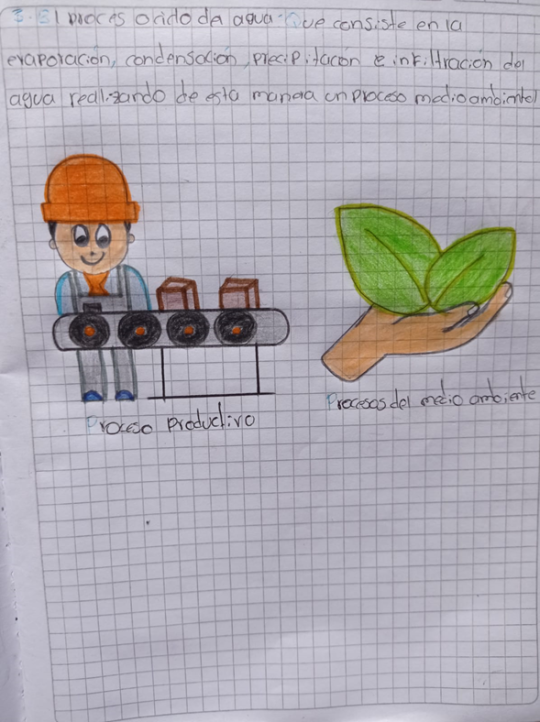 3. El proces o ciclo de agua: Que consiste en la
evaporación, condensación, precipitación e infiltración del
agua realizando de esta manera un proceso medioambiental
Proceso productivo
Procesos del medio ambiente